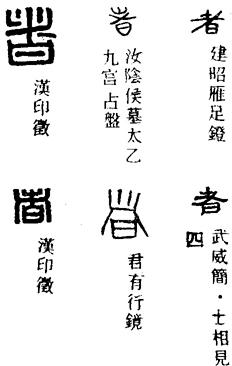 者
建昭雁足鐙
者
武威簡·士相見
四
者
汝陰侯墓太乙
九宫占盤
者
君有行鏡
者
漢印徵
者
漢印徵